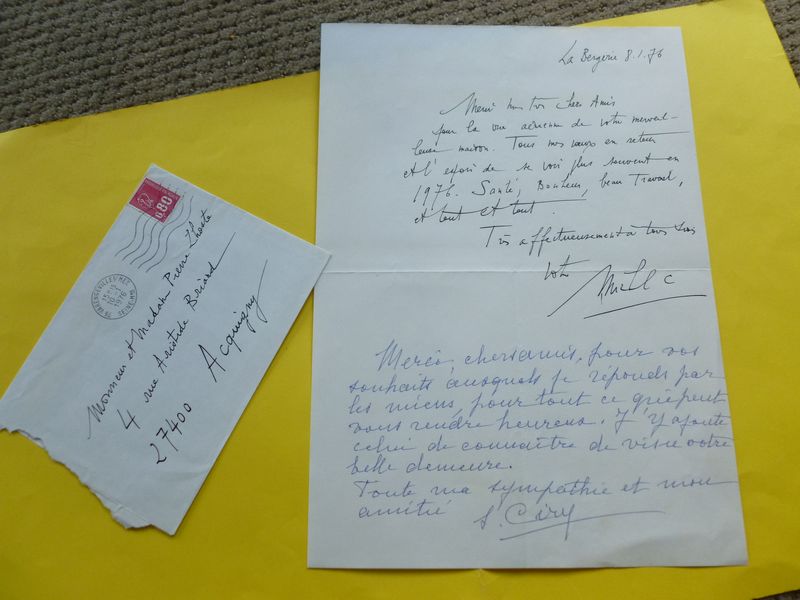 La Bergerie 8.1.76
Merci mes très chers Amis
pour la vue aérienne de votre merveil-
leuse maison. Tous mes vœux en retour
et l'espoir de se voir plus souvent en
1976. Santé, Bonheur, beau Travail,
et tout et tout.
Très affectueusement à tous deux
Votre
Merci, chers amis, pour vos
souhaits auxquels je réponds par
les miens, pour tout ce qui peut
vous rendre heureux. J'y ajoute
celui de connaître de visu votre
belle demeure.
Toute ma sympathie et mon
amitié
S. Ciry
0.80
76 VARENGEVILLE S/MER
1976
SEINE-MME
Monsieur et Madame Pierre
4 rue Aristide Briand
27400 Acquigny